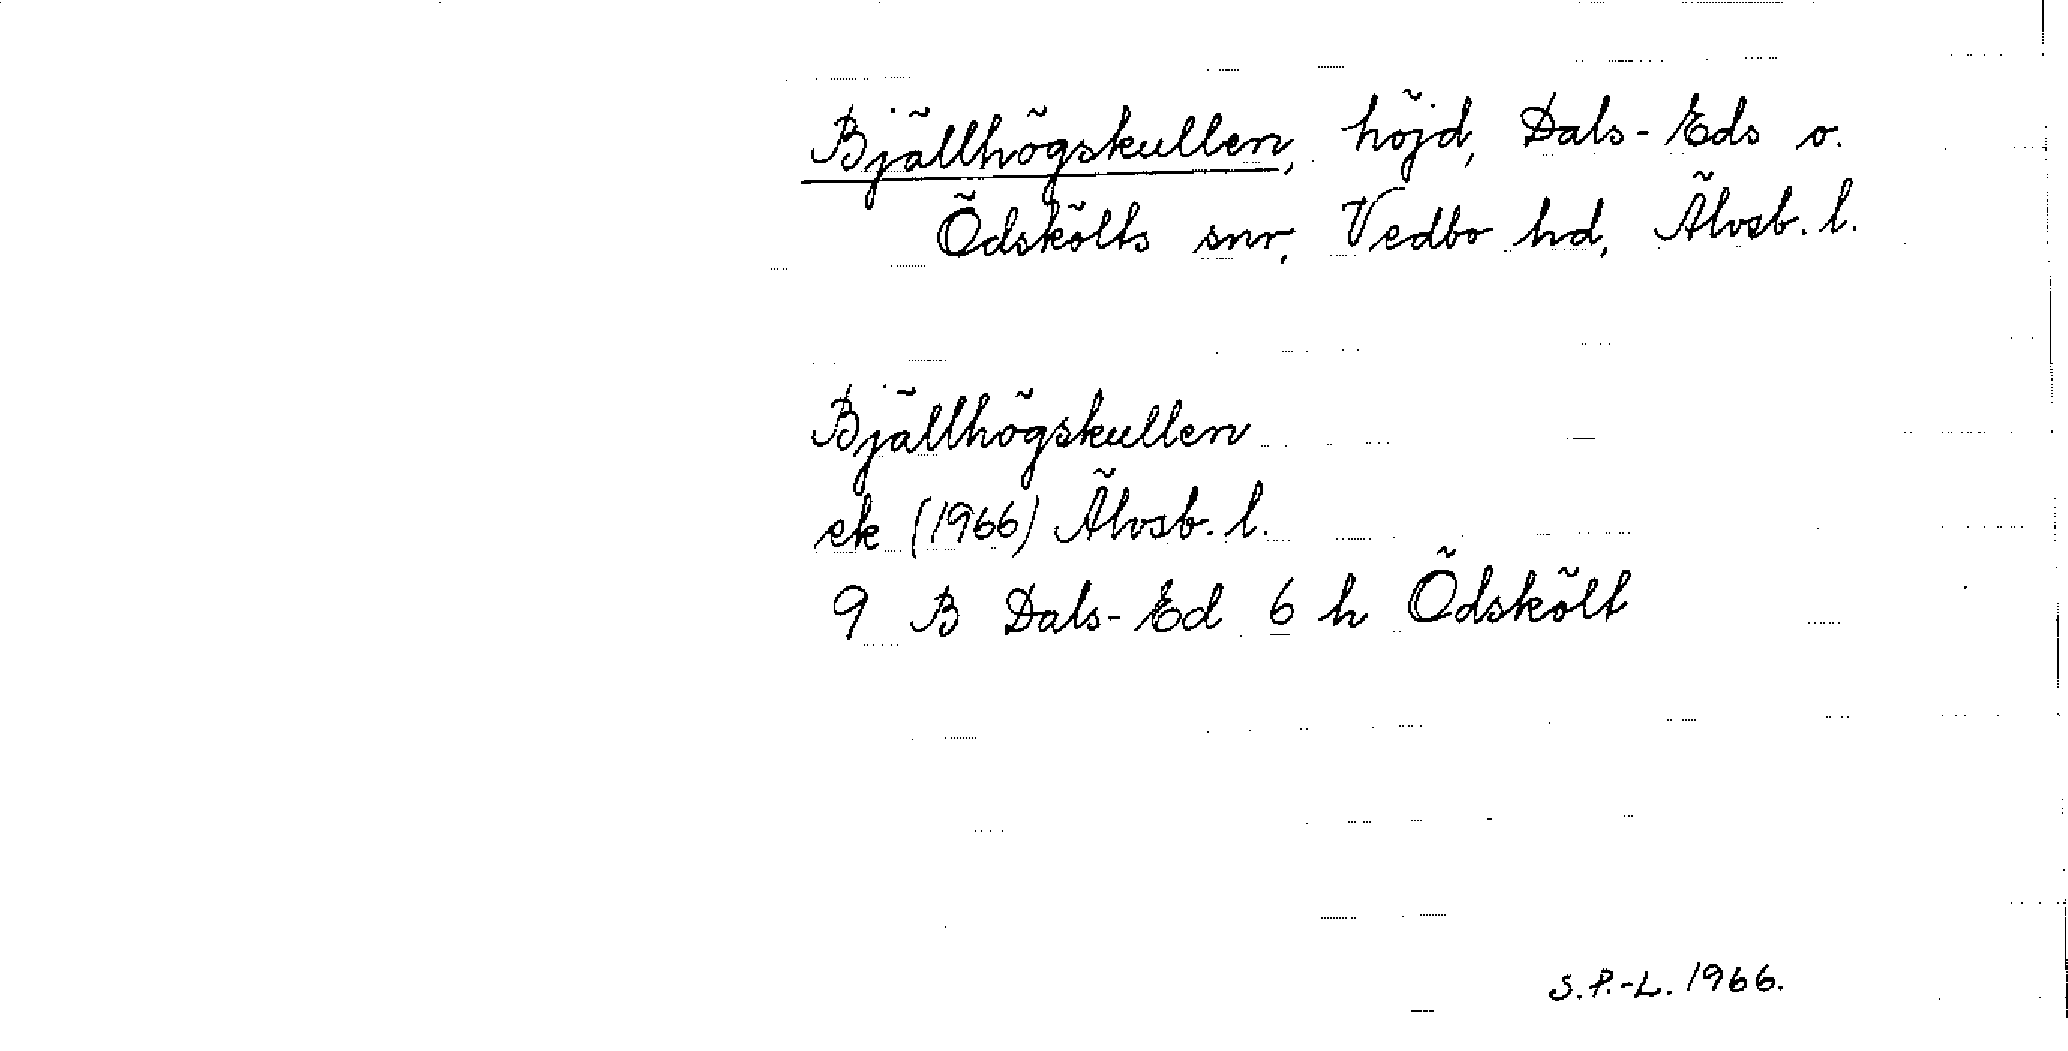 Bjällhögskullen, höjd, Dals-Eds o.
Ödskölts snr, Vedbo hd, Älvsb. l.
Bjällhögskullen
ek (1966) Älvsb. l.
9 B Dals-Ed 6 h Ödskölt
S.P.-L. 1966.